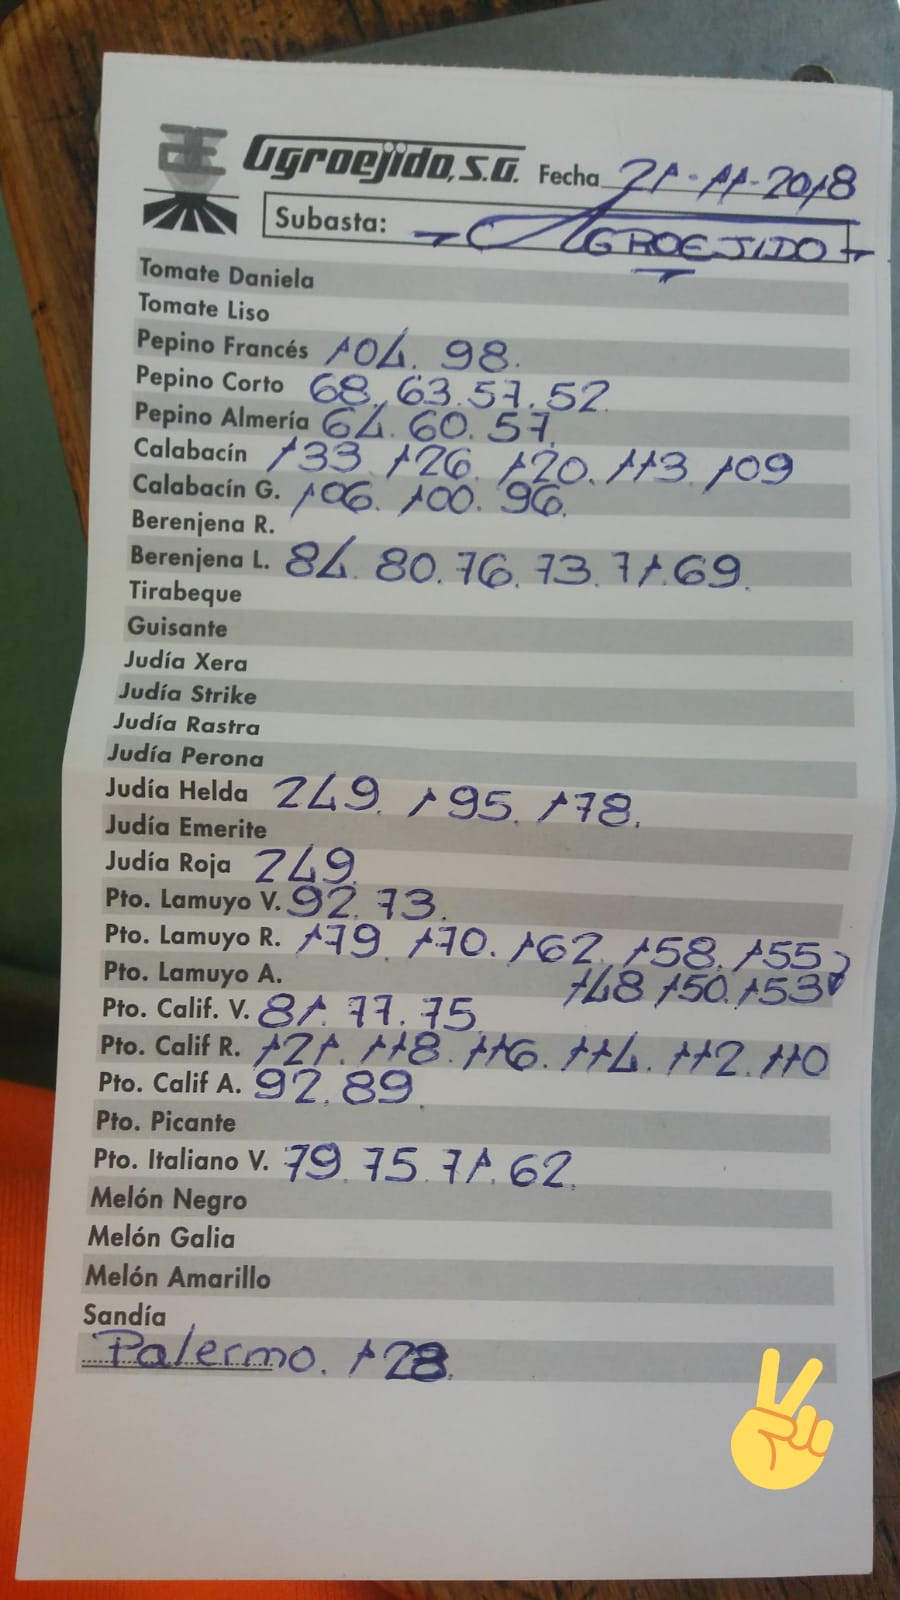 Agroejido, S.A. Fecha 21-11-2018
Subasta: - AGROEJIDO -
Tomate Daniela
Tomate Liso
Pepino Francés 104. 98.
Pepino Corto 68. 63. 57. 52
Pepino Almería 64. 60. 57.
Calabacín 133. 126. 120. 113. 109
Calabacín G. 106. 100. 96.
Berenjena R.
Berenjena L. 84. 80. 76. 73. 71. 69.
Tirabeque
Guisante
Judía Xera
Judía Strike
Judía Rastra
Judía Perona
Judía Helda 249. 195. 178.
Judía Emerite
Judía Roja 249.
Pto. Lamuyo V. 92. 73.
Pto. Lamuyo R. 179. 170. 162. 158. 155
Pto. Lamuyo A. 148 150. 153
Pto. Calif. V. 81. 77. 75
Pto. Calif R. 121. 118. 116. 114. 112. 110
Pto. Calif A. 92. 89
Pto. Picante
Pto. Italiano V. 79. 75. 71. 62.
Melón Negro
Melón Galia
Melón Amarillo
Sandía
Palermo. 128.